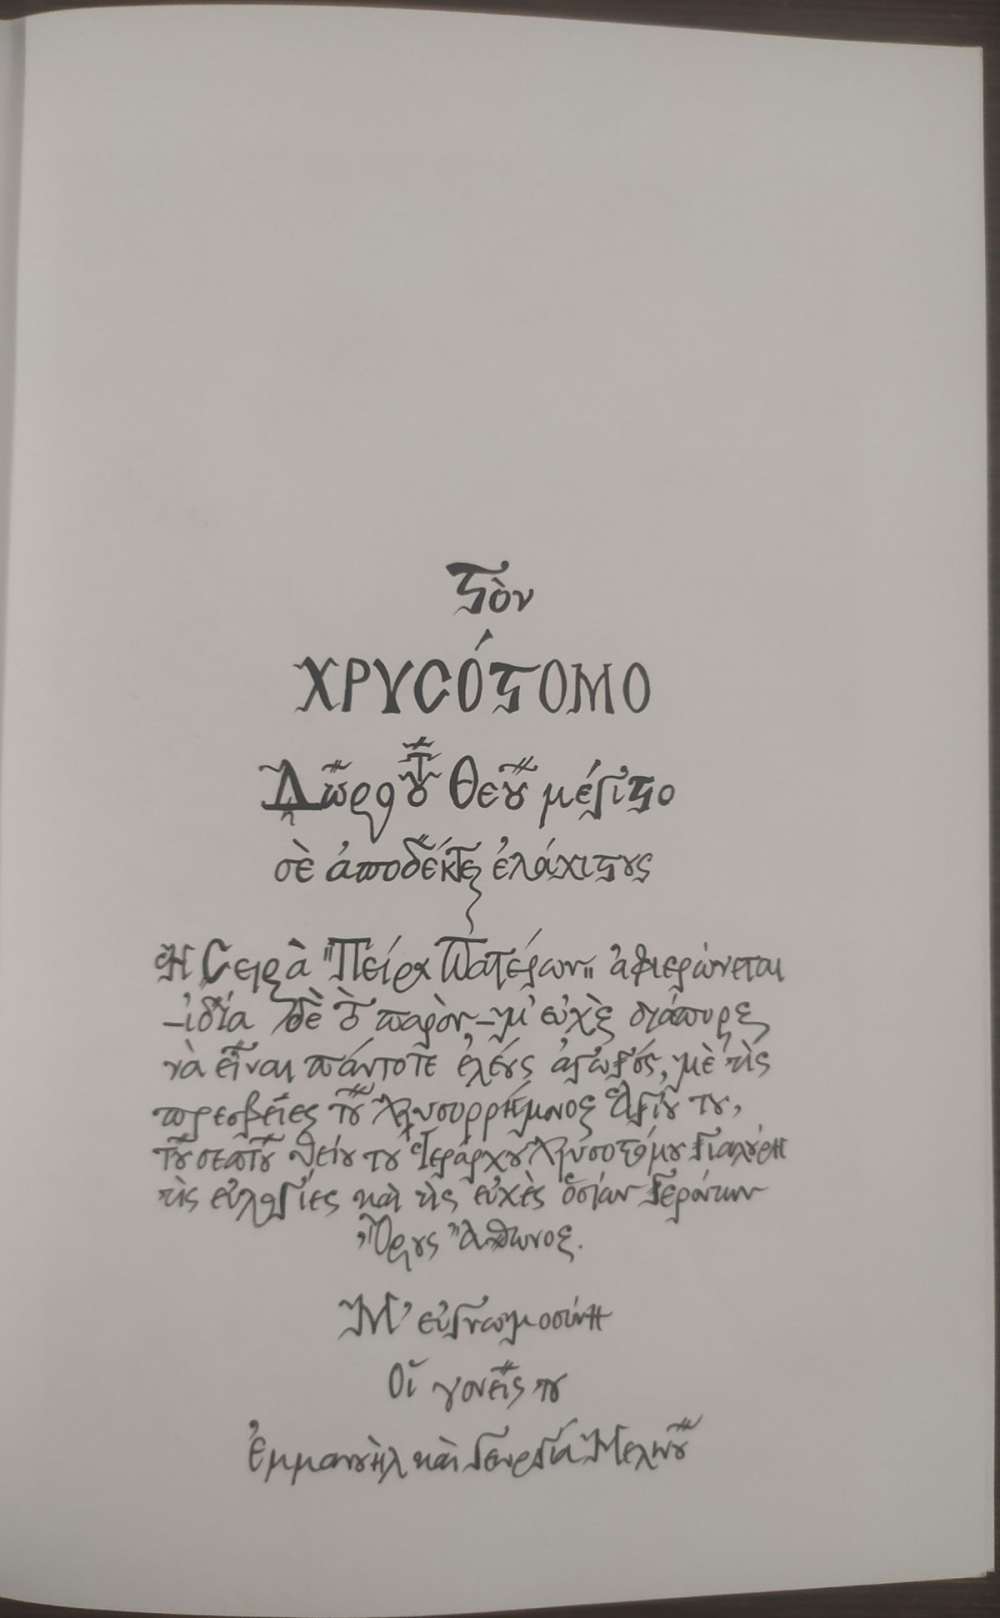 Στὸν
ΧΡΥΣΌΣΤΟΜΟ
Δῶρο τοῦ Θεοῦ μέγιστο
σὲ ἀποδέκτες ἐλάχιστους
Ἡ Σειρὰ "Πεῖρα Πατέρων" ἀφιερώνεται
–ἰδία δὲ τὸ παρὸν,–μ' εὐχὲς διάπυρες
νὰ εἶναι πάντοτε ἐλέους ἀγωγός, μὲ τὶς
πρεσβεῖες τοῦ Χρυσορρήμονος Ἁγίου του,
τοῦ σεπτοῦ θείου του Ἱεράρχου Χρυσοστόμου Γιαλούρη
τὶς εὐλογίες καὶ τὶς εὐχὲς ὁσίων Γερόντων
Ὄρους Ἄθωνος.
Μ' εὐγνωμοσύνη
Οἱ γονεῖς του
Ἐμμανουὴλ καὶ Γεωργία Μελινοῦ